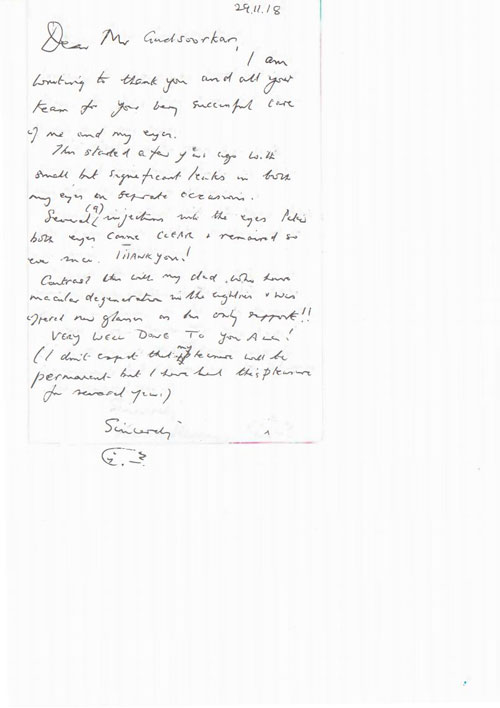 29.11.18
Dear Mr Gudsoorkar,
I am
writing to thank you and all your
team for your very successful care
of me and my eyes.
This started a few years ago with
small but significant leaks in both
my eyes on separate occasions.
Several (9) injections into the eyes later
both eyes came CLEAR + remained so
ever since. THANK you!
Contrast this with my dad, who had
macular degeneration in the eighties + was
offered new glasses as his only support!!
VERY WELL DONE TO YOU ALL!
(I don't expect that my pleasure will be
permanent but I have had this pleasure
for several years)
Sincerely